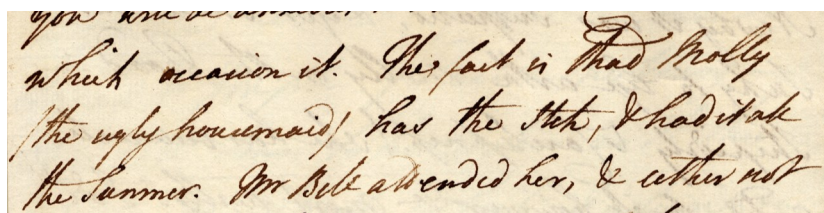 you are
which occasion it. The fact is that Molly
(the ugly housemaid) has the Itch, & had it all
the Summer. Mr Bell attended her, & either not